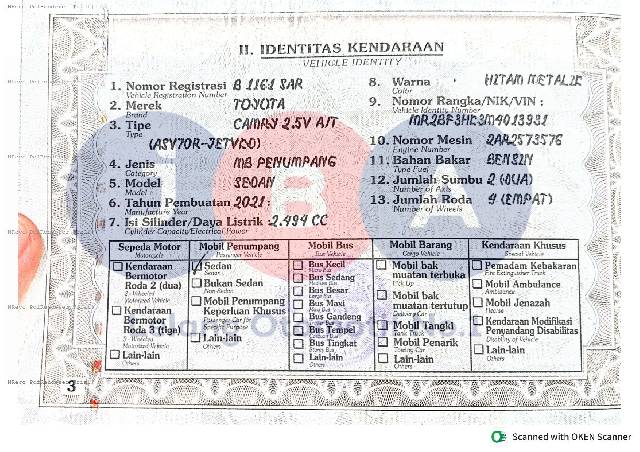 II. IDENTITAS KENDARAAN
VEHICLE IDENTITY
1. Nomor Registrasi B 1161 SAR
Vehicle Registration Number
2. Merek TOYOTA
Brand
3. Tipe CAMRY 2.5V A/T
Type
(ASV70R-JETVCO)
4. Jenis MB PENUMPANG
Category
5. Model SEDAN
Model
6. Tahun Pembuatan 2021:
Manufacture Year
7. Isi Silinder/Daya Listrik : 2.494 CC
Cylinder Capacity/Electrical Power
8. Warna : HITAM METALIK
Color
9. Nomor Rangka/NIK/VIN :
Vehicle Identity Number
10. Nomor Mesin 2AR2573576
Engine Number
11. Bahan Bakar BENSIN
Type Fuel
12. Jumlah Sumbu 2 (DUA)
Number of Axis
13. Jumlah Roda 4 (EMPAT)
Number of Wheels
Sepeda Motor
Motorcycle
Kendaraan
Bermotor
Roda 2 (dua)
2 - Wheeled
Motorized Vehicle
Kendaraan
Bermotor
Roda 3 (tiga)
3 - Wheeled
Motorized Vehicle
Lain-lain
Others
Mobil Penumpang
Passenger Vehicle
Sedan
Sedan
Bukan Sedan
Non-Sedan
Mobil Penumpang
Keperluan Khusus
Passenger Car for
Specific Purpose
Lain-lain
Others
Mobil Bus
Bus Vehicle
Bus Kecil
Bus Sedang
Bus Besar
Bus Maxi
Bus Gandeng
Bus Tempel
Bus Tingkat
Lain-lain
Others
Mobil Barang
Cargo Vehicle
Mobil bak
muatan terbuka
Pick Up
Mobil bak
muatan tertutup
Delivery Car
Mobil Tangki
Tank Truck
Mobil Penarik
Towing Car
Lain-lain
Others
Kendaraan Khusus
Special Vehicle
Pemadam Kebakaran
Fire Extinguisher Truck
Mobil Ambulance
Ambulance
Mobil Jenazah
Hearse
Kendaraan Modifikasi
Penyandang Disabilitas
Disability of Vehicle
Lain-lain
Others
3
Scanned with OKEN Scanner